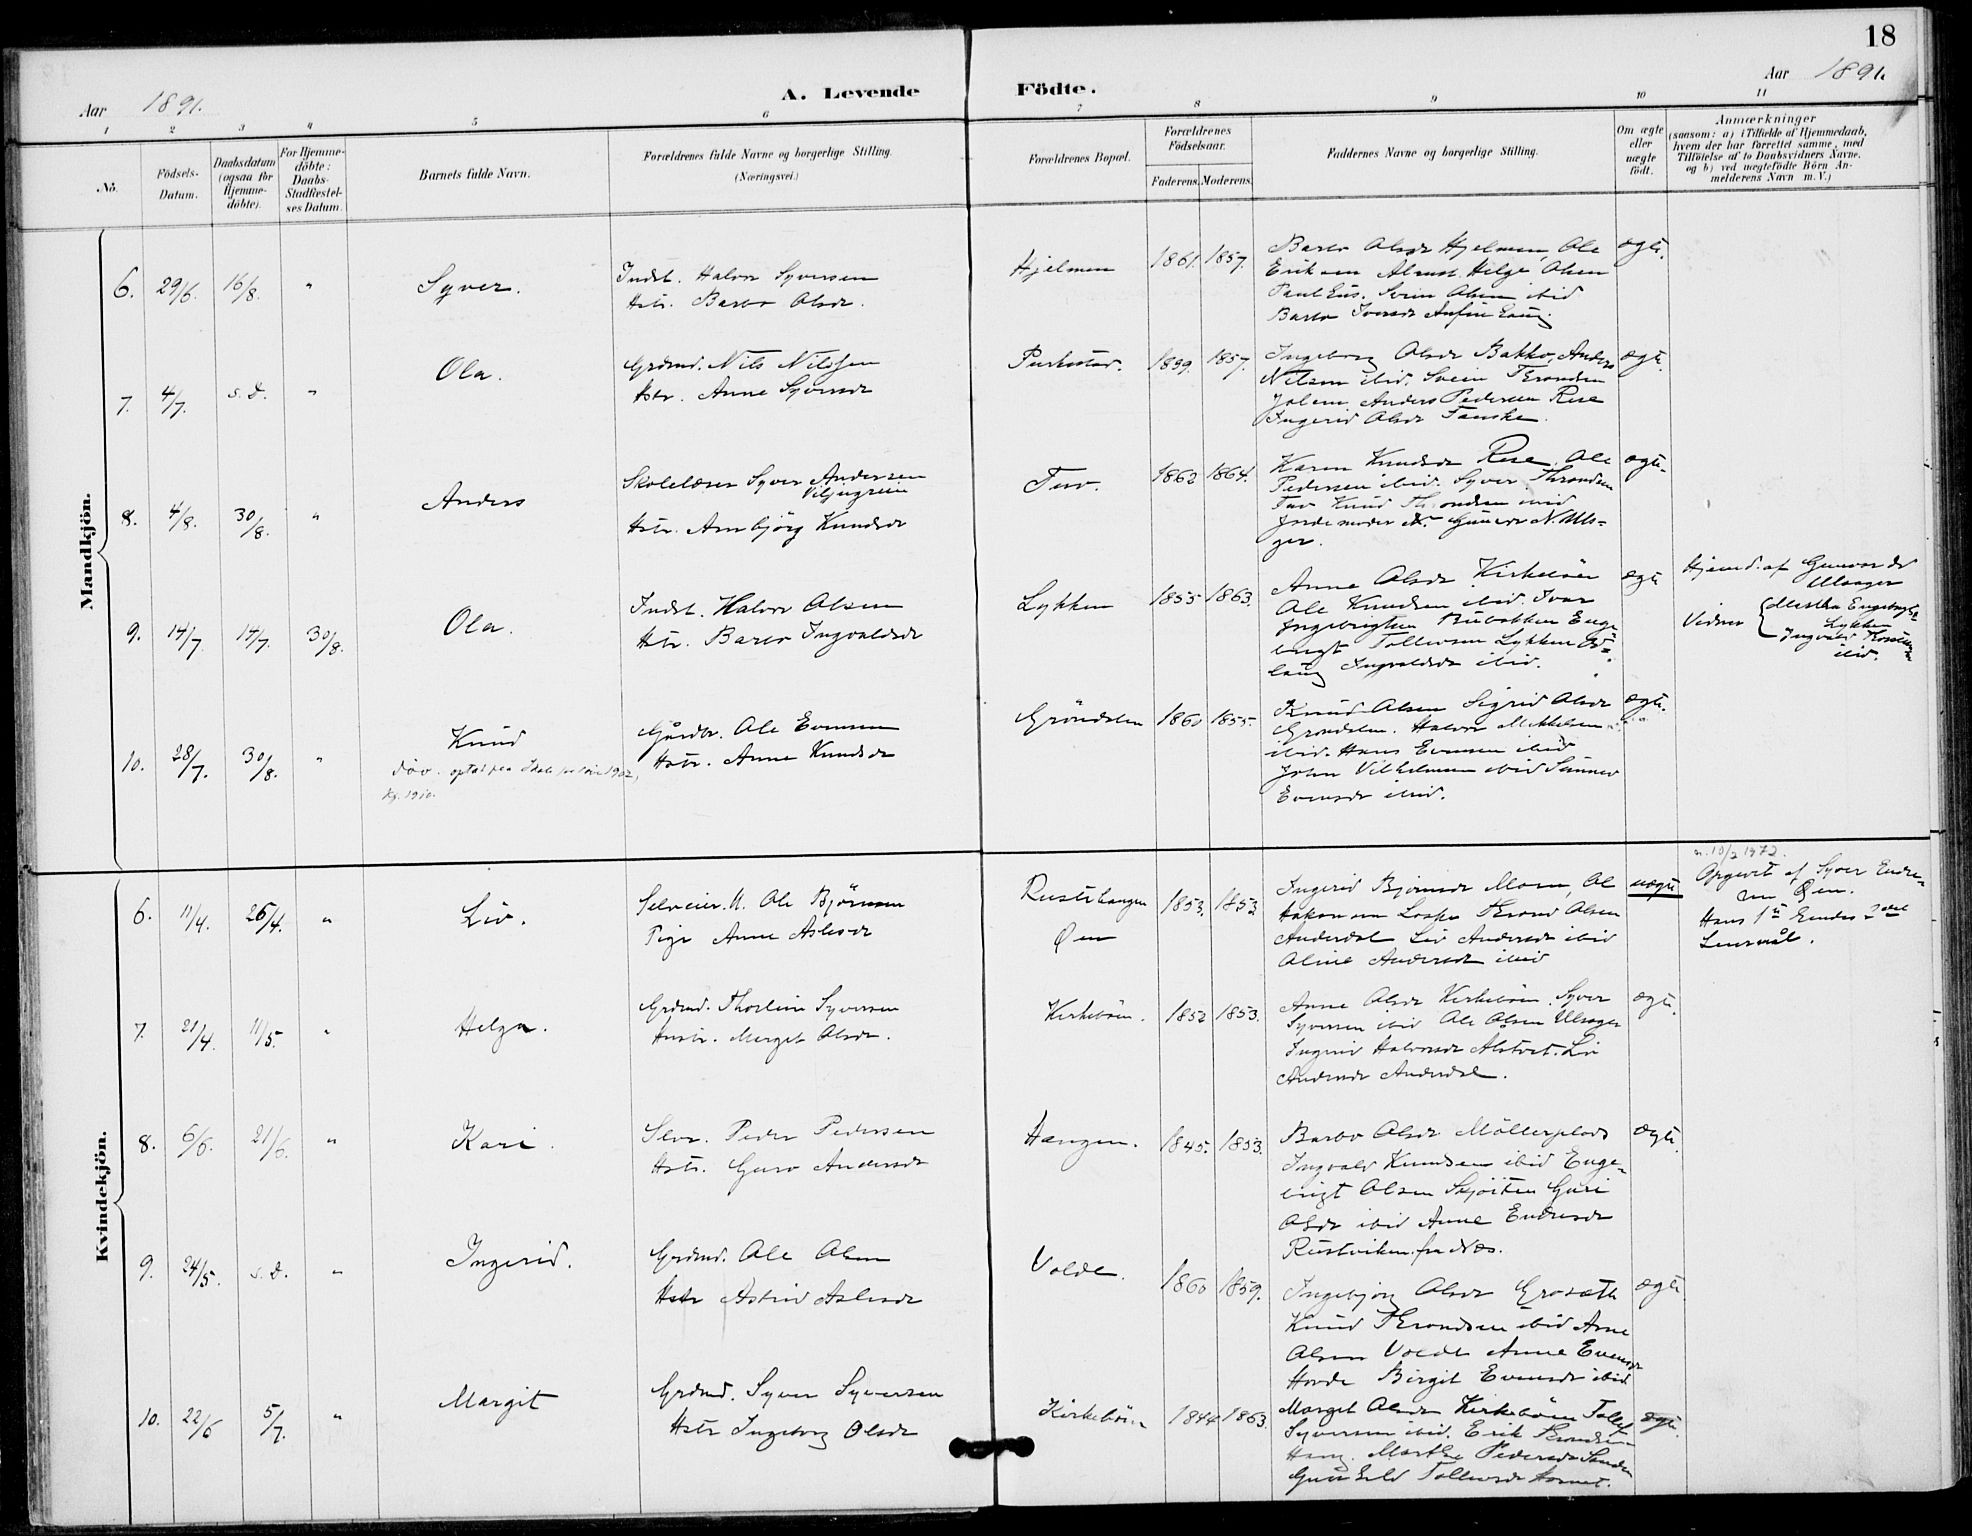 18
Aar 1891.
A. Levende Födte.
Aar 1891.
1 2 3 4 5 6 7 8 9 10 11
No.
Födsels-
Datum.
Daabsdatum
(ogsaa for
Hjemme-
döbte).
For Hjemme-
döbte:
Daabs-
Stadfæstel-
ses Datum.
Barnets fulde Navn.
Forældrenes fulde Navne og borgerlige Stilling.
(Næringsvei.)
Forældrenes Bopæl.
Forældrenes
Födselsaar.
Faderens. Moderens.
Faddernes Navne og borgerlige Stilling.
Om ægte
eller
uægte
födt.
Anmærkninger
(saasom: a) i Tilfælde af Hjemmedaab,
hvem der har forrettet samme, med
Tilföielse af to Daabsvidners Navne,
og b) ved uægtefödte Börn An-
melderens Navn m. V.)
Mandkjön.
6. 29/6. 16/8. " Syver.
Indst. Halvor Syversen
Hstr. Barbo Olsdr.
Hjelmen 1861. 1857.
Barbo Olsdr Hjelmen, Ole
Eriksen Helge Olsen
Svein Olsen ibid
Barbo Iversdr
ægte.
7. 4/7. s.D. " Ola.
Grdmd. Nils Nilssen
Hstr. Anne Syversdr
1859. 1857.
Ingeborg Olsdr Bakko, Anders
Nilsen ibid. Svein Throndsen
Anders Pedersen Rese
Ingerid Olsdr
ægte.
8. 4/8. 30/8. " Anders
Skolelærer Syver Andersen
Viljugrein
Hstr. Ambjörg Knudsdr
Tuv. 1862 1864.
Karen Knudsdr Rese. Ole
Pedersen ibid. Syver Throndsen
Tuv Knud Throndsen ibid
Jordemoder Gunvor N. Uls-
ger.
ægte.
9. 14/7. 14/7. 30/8. Ola.
Indst. Halvor Olsen
Hstr. Barbo Ingvaldsdr
Lykken 1855 1863.
Anne Olsdr Kirkebøen
Ole Knudsen ibid. Ivar
Ingebrigtsen Enge-
brigt Tollevsen Lykken
Ingvaldsdr ibid.
ægte
Hjemd. af Gunvor
Ulsager
Vidner
Lykken
Ingvald
ibid.
10. 28/7. 30/8. " Knud
döv. 1902,
Kf. 1910.
Gårdbr. Ole Evensen
Hstr. Anne Knudsdr
Gröndalen 1860 1855.
Knud Olsen Sigrid Olsdr
Gröndalen. Halvor Mikkelsen
ibid. Hans Evensen ibid
John Vilhelmsen ibid Sünnev
Evensdr ibid.
ægte.
Kvindekjön.
6. 11/4. 26/4. " Liv.
Selveier. U. Ole Björnsen
Pige Anne Aslesdr
Rustehaugen
Øen
1853. 1853
Ingerid Björnsdr Moen, Ol
Hakonsen Trond Olsen
Anderdal Liv Andersdr ibid
Oline Andersdr ibid
uægte
10/2 1972.
Opgivet af Syver Endre-
sen Øen.
Hans 1ste Endes 2det
Leiermål.
7. 21/4. 11/5. " Helga.
Grdmd. Thorstein Syversen
Hustr. Marget Olsdr.
Kirkebøen. 1852 1853.
Anne Olsdr Kirkebøen. Syver
Syversen ibid Ole Olsen Ulsager
Ingerid Halvorsdr Liv
Andersdr Anderdal.
ægte.
8. 6/6. 21/6. " Kari.
Slvr. Peder Pedersen
Hstr. Guro Andersdr
Haugen. 1845. 1853.
Barbo Olsdr Möllerplads
Ingvald Knudsen ibid Enge-
brigt Olsen Guri
Olsdr ibid Anne Endresdr
Rustviken fra Næs.
ægte.
9. 24/5. s.D. " Ingerid.
Grdmd. Ole Olsen
Hstr Astrid Aslesdr
Volde. 1860 1859.
Ingebjörg Olsdr Grosæth
Knud Throndsen ibid Arne
Olsen Volde Anne Evensdr
Hovde Birgit Evensdr ibid
ægte
10. 22/6 5/7. " Margit
Grdmd. Syver Syversen
Hstr Ingeborg Olsdr
Kirkebøen 1844 1863.
Marget Olsdr Kirkebøen Tollef
Syversen ibid. Erik Throndsen
Haug. Marthe Pedersdr Sanden
Gunhild Tollevsdr
ægte.